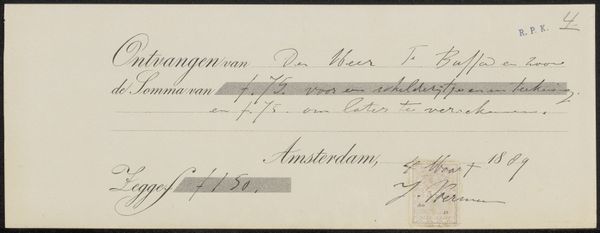 R. P. K. 4
Ontvangen van Den Heer F Buffa en zoon
de Somma van f. 75. voor een schilderijtje en een teekening
en f. 75 om later te verrekenen.
Amsterdam, 4 Maart 1889
Zegge f 150.
J. Voerman